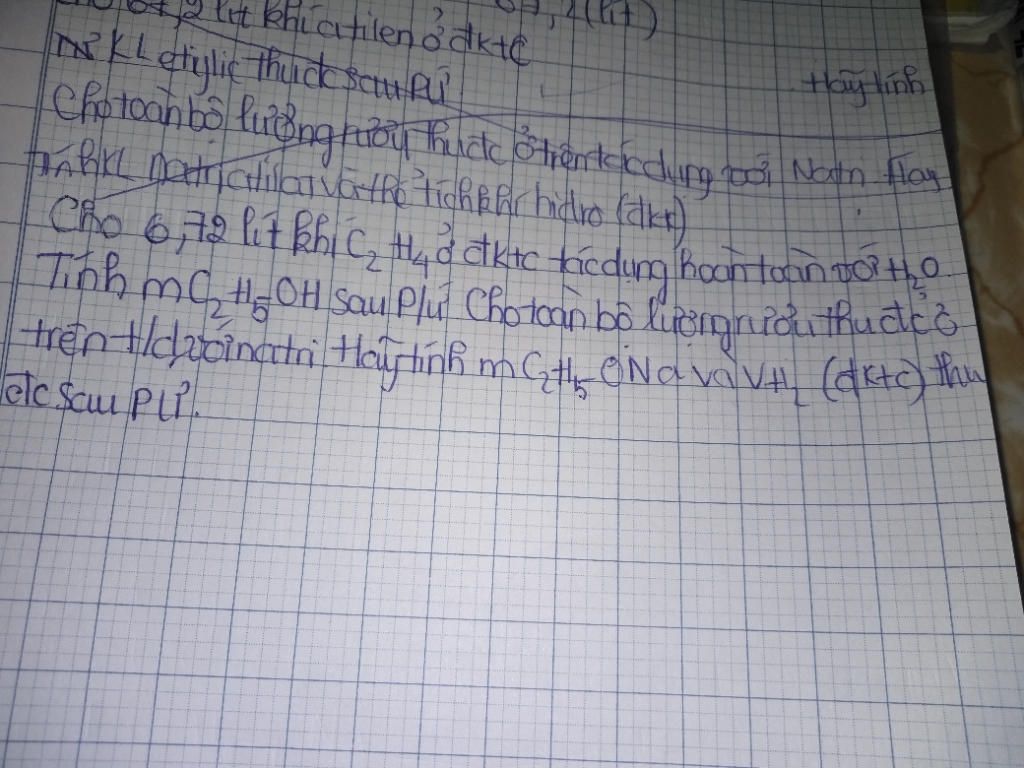 6,72 lít khí etilen ở đktc
KL etylic thu đc sau pứ
Hãy tính
Cho toàn bộ lượng rượu thu đc ở trên tác dụng với Natri Hãy
tính KL natri etilat và thể tích khí hidro (đkt)
Cho 6,72 lít khí C2H4 ở đktc tác dụng hoàn toàn với H2O
Tính mC2H5OH sau P/ứ Cho toàn bộ lượng rượu thu đc ở
trên t/d với natri Hãy tính mC2H5ONa và VH2 (đktc) thu
đc sau pứ.